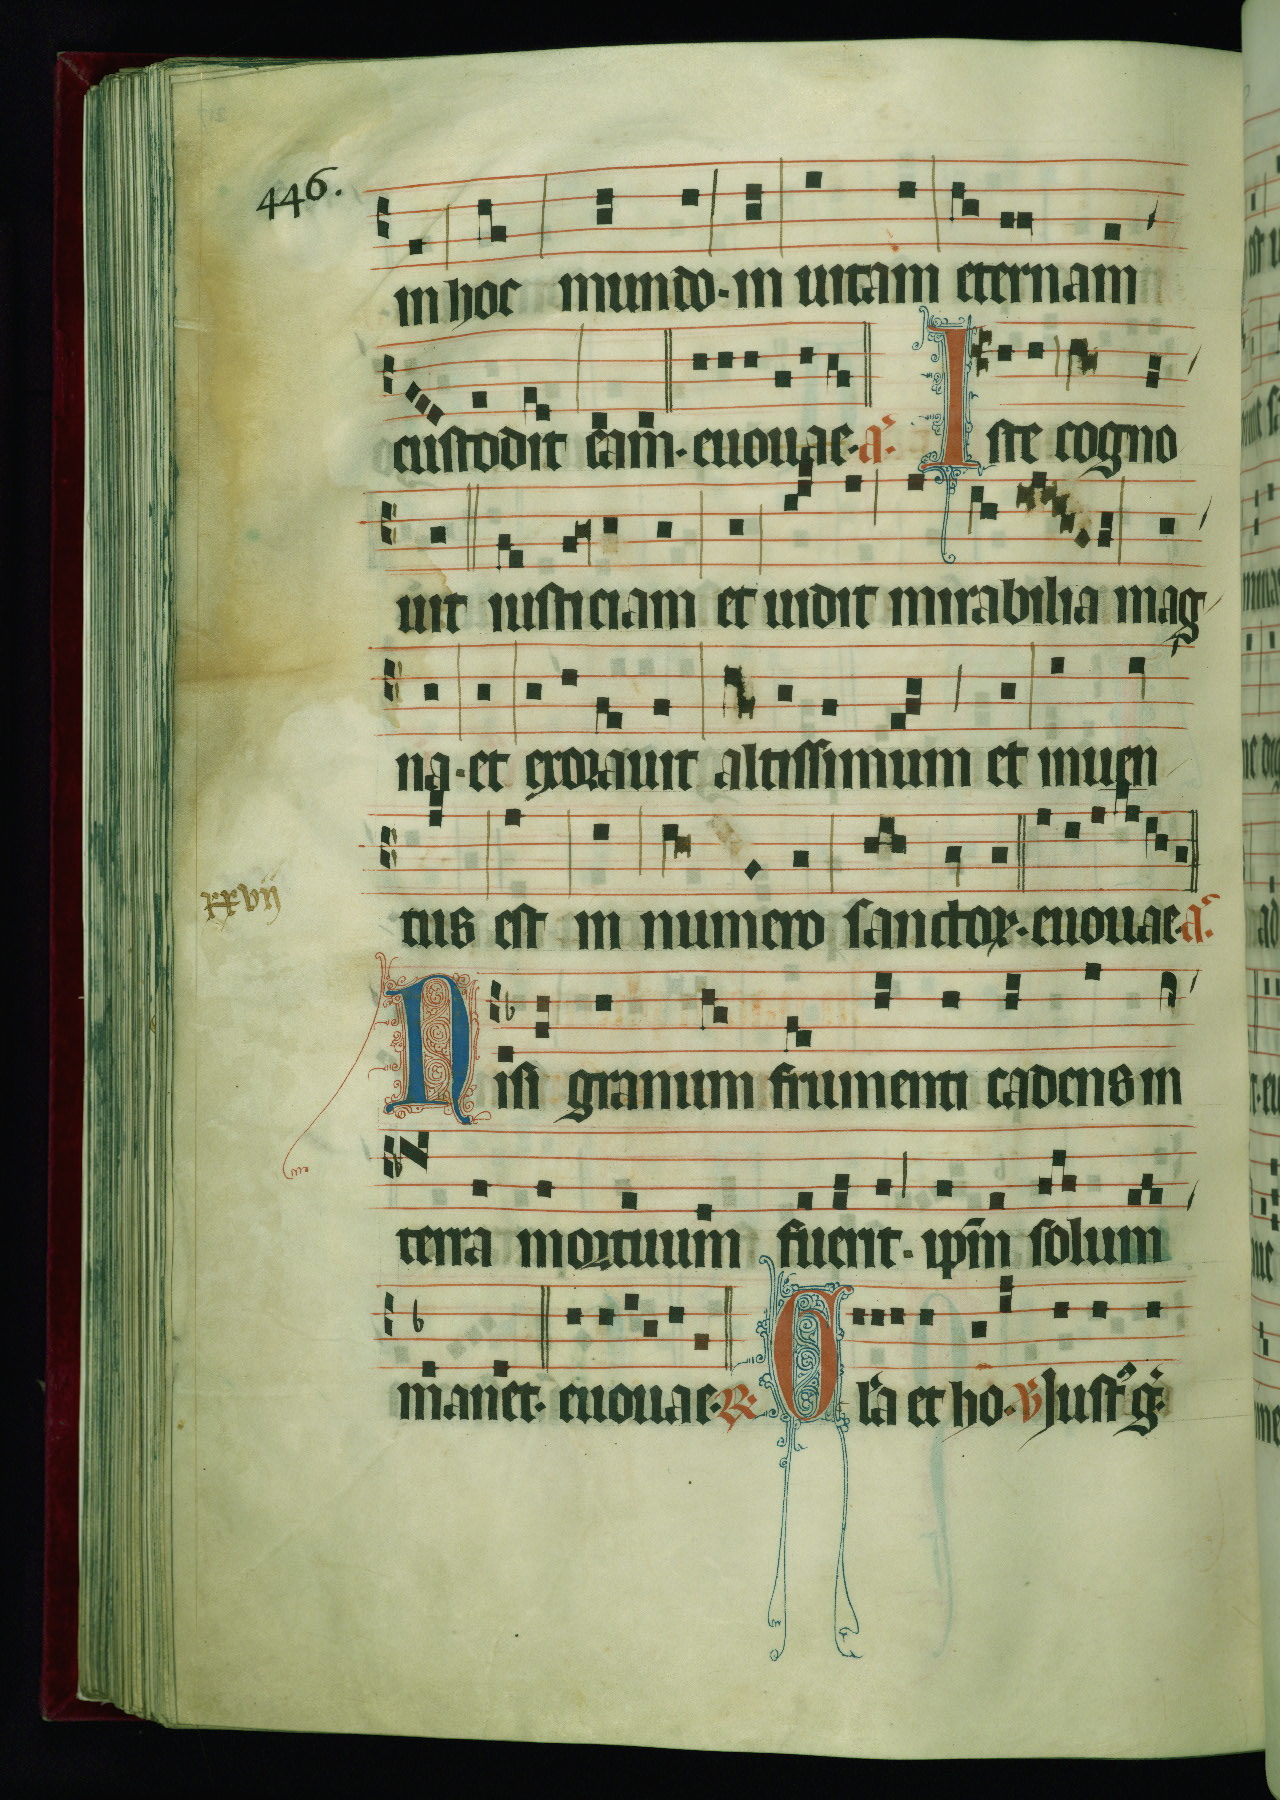 446.
in hoc mundo. in uitam eternam
custodit eam. euouae. a̅. Iste cogno
uit iusticiam et uidit mirabilia mag
na. et exorauit altissimum et inuen
tus est in numero sanctoꝝ. euouae. a̅.
xxvij
Nisi granum frumenti cadens in
terra mortuum fuerit. ip̅m solum
manet. euouae. R. Gl̅a et ho. V Just᷑ g̅.